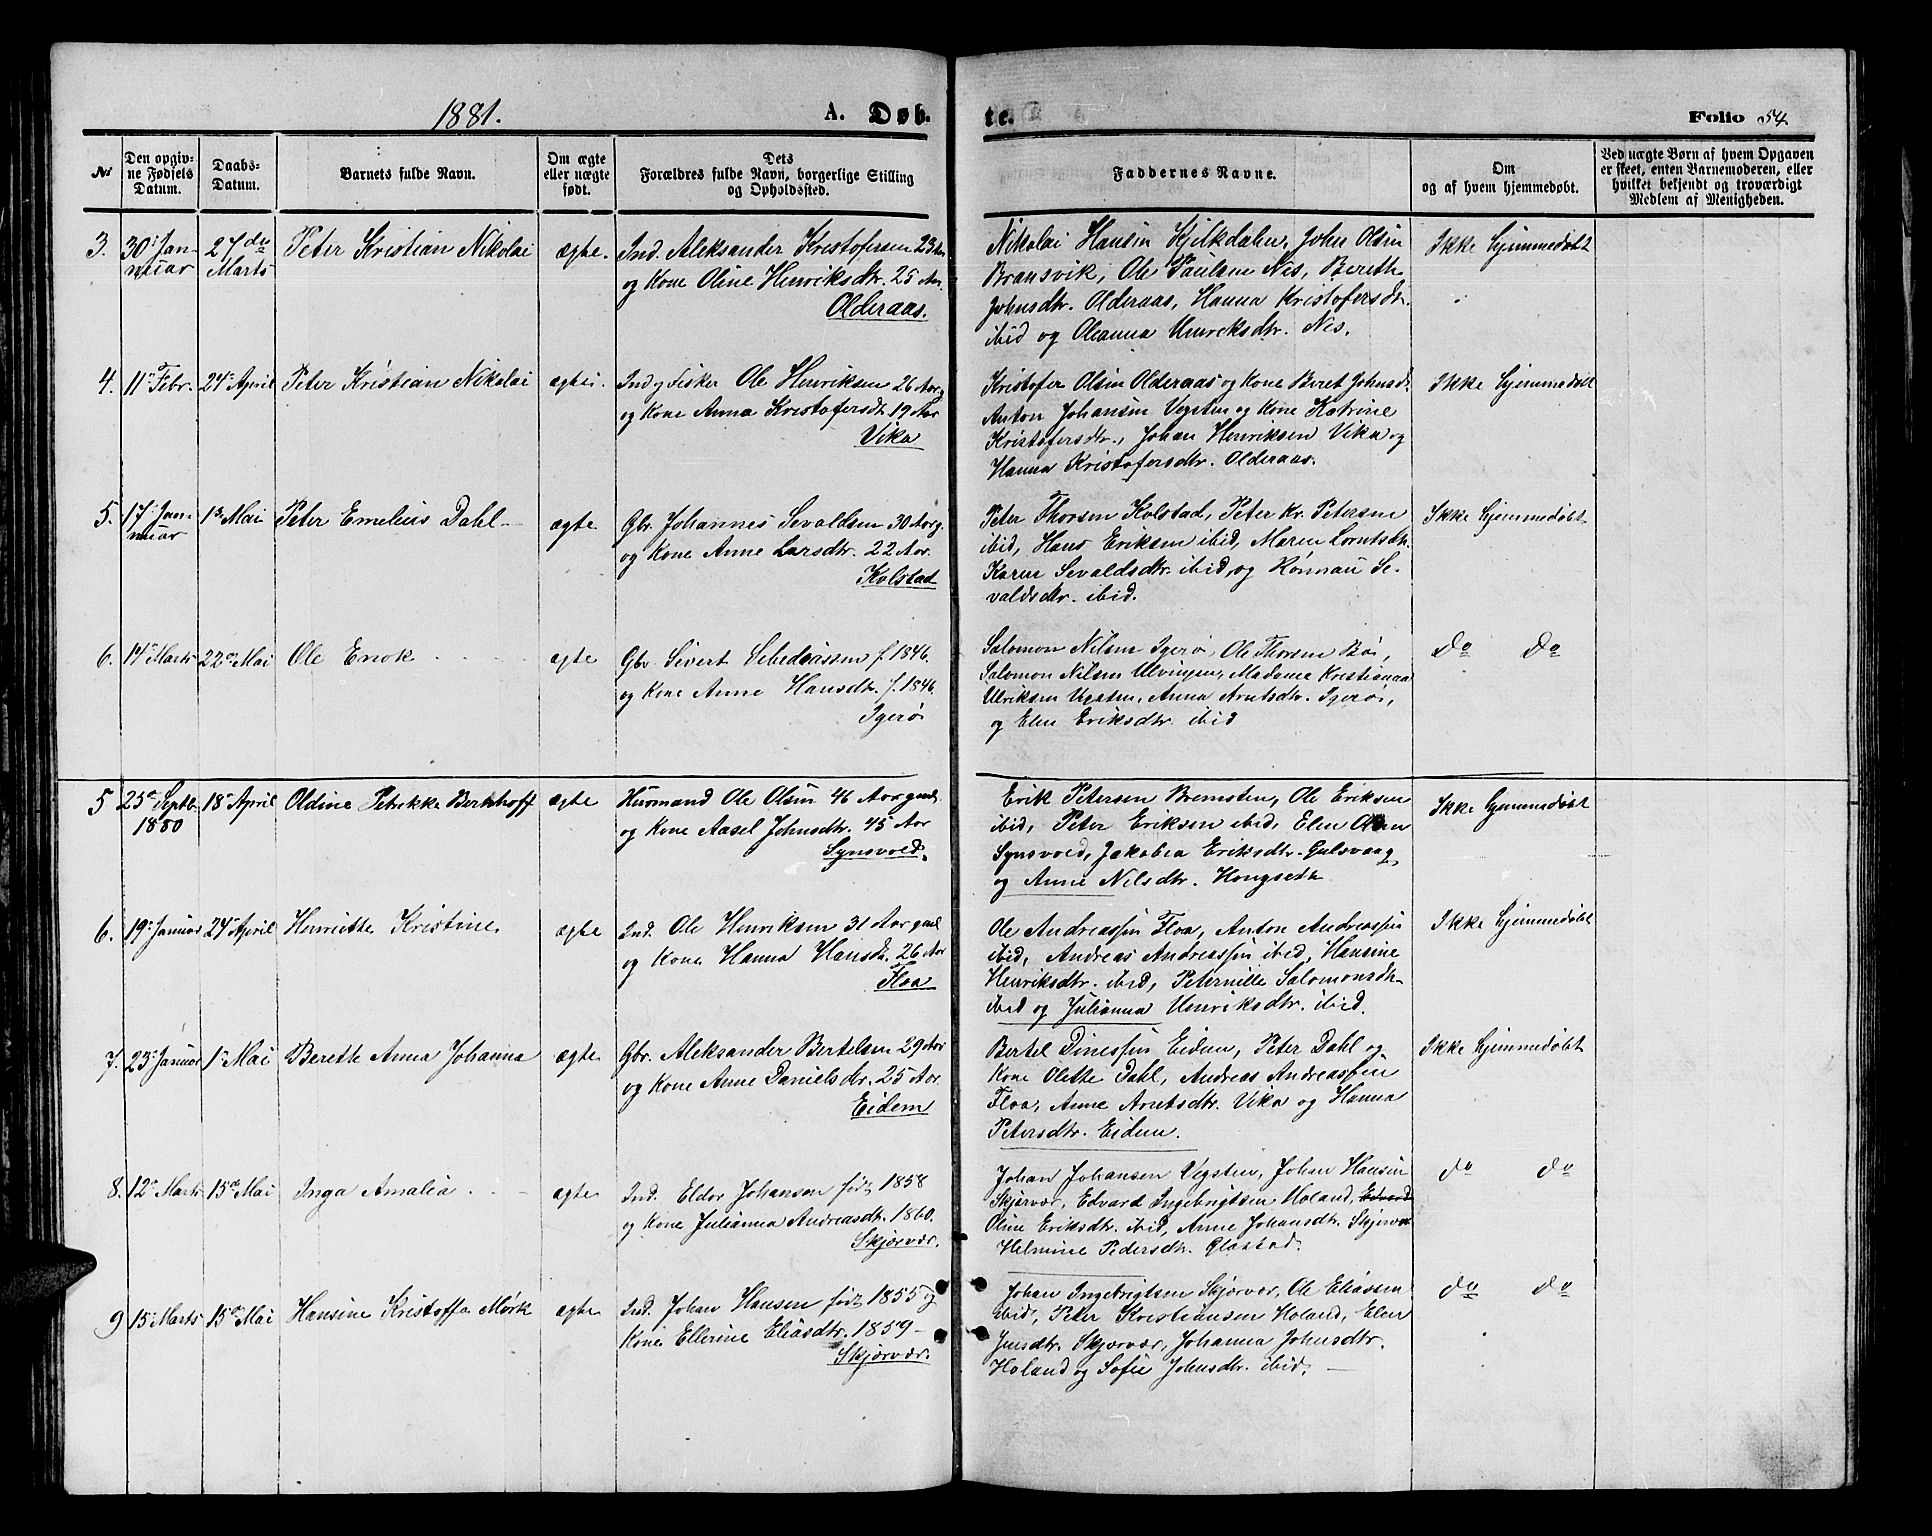 1881.
A. Døb-
te.
Folio 54.
No
Den opgiv-
ne Fødsels
Datum.
Daabs-
Datum.
Barnets fulde Navn.
Om ægte
eller uægte
født.
Dets
Forældres fulde Navn, borgerlige Stilling
og Opholdssted.
Faddernes Navne.
Om
og af hvem hjemmedøbt.
Ved uægte Børn af hvem Opgaven
er skeet, enten Barnemoderen, eller
hvilket bekjendt og troværdigt
Medlem af Menigheden.
3. 30 Jan-
nuar
27de
Marts
Peter Kristian Nikolai
ægte.
Ind. Aleksander Kristofersen 23 Aar
og Kone Oline Henriksdtr. 25 Aar.
Olderaas.
Nikolai Hansen Kjilkdalen, John Olsen
Bransvik, Ole Paulsen Nes, Berethe
Johnsdtr. Olderaas, Hanna Kristofersdtr.
ibid og Oleanna Henriksdtr. Nes.
Ikke hjemmedøbt
4. 11 Febr. 24 April Peter Kristian Nikolai ægte.
Ind og Fisker Ole Henriksen 26 Aar
og Kone Anna Kristofersdtr 19 Aar
Vika
Kristofer Olsen Olderaas og Kone Beret Johnsdtr
Anton Johansen Vegsten og Kone Katrine
Kristofersdtr., Johan Henriksen Vika og
Hanna Kristofersdtr. Olderaas.
Ikke hjemmedøbt
5. 17 Jan-
nuar
1ste Mai Peter Emelius Dahl
ægte
Gbr. Johannes Sevaldsen 30 Aar g.
og Kone Anne Larsdtr. 22 Aar.
Kolstad
Peter Thorsen Kolstad, Peter Kr. Petersen
ibid, Hans Eriksen ibid, Maren Lorntsdtr.
Karen Sevaldsdtr. ibid, og Rønnau Se-
valdsdtr. ibid.
Ikke hjemmedøbt
6. 14 Marts 22de Mai Ole Enok ægte
Gbr Sivert Sebedeassen f. 1846.
og Kone Anne Hansdtr. f. 1846.
Igerøi
Salomon Nilsen Igerøi, Ole Thorsen Bøi,
Salomon Nilsen Ulvingen, Madame Kristianaa
Ulriksen Vegsten, Anna Arntsdtr. Igerøi,
og Elen Eriksdtr. ibid
Do Do
5 25de Septbr.
1880
18de April Oldine Petrikke Berkhoff ægte
Husmand Ole Olsen 46 Aar gml.
og Kone Aasel Johnsdtr. 45 Aar
Synsvoed.
Erik Petersen Bremsten, Ole Eriksen
ibid, Peter Eriksen ibid, Elen Olsen
Synsvoed, Jakobia Eriksdtr. Gulsvaag
og Anne Nilsdtr. Hongseth
Ikke hjemmedøbt
6. 19 Januar 24 April Henriette Kristine. ægte
Ind. Ole Henriksen 31 Aar gml
og Kone Hanna Hansdtr. 26 Aar
Floa
Ole Andreassen Floa, Anton Andreassen
ibid, Andreas Andreassen ibid, Hansine
Henriksdtr. ibid, Peternille Salomonsdtr.
ibid og Julianna Henriksdtr. ibid.
Ikke hjemmedøbt
7. 23 Januar 1ste Mai Berethe Anna Johanna ægte
Gbr. Aleksander Bertelsen 29 Aar
og Kone Anne Danielsdtr. 25 Aar.
Eidem
Bertel Dinessen Eidem, Peter Dahl og
Kone Olette Dahl, Andreas Andreassen
Floa, Anne Arntsdtr. Vika og Hanna
Petersdtr. Eidem.
Ikke hjemmedøbt
8. 12 Marts 15de Mai Inga Amalia ægte
Ind. Eldor Johansen født 1858
og Kone Julianna Andreasdtr. 1860.
Skjærvær.
Johan Johansen Vegsten, Johan Hansen
Skjærvær, Edvard Ingebrigtsen Holand, Edvard
Oline Eriksdtr. ibid, Anne Johansdtr. Skjærvær
Helmine Pedersdtr. Glasstad.
do do
9 15 Marts 15de Mai Hansine Kristoffa Mørk ægte
Ind. Johan Hansen født 1855 og
Kone Ellerine Eliasdtr. 1859
Skjærvær.
Johan Ingebrigtsen Skjærvær, Ole Eliassen
ibid, Peter Kristiansen Holand, Elen
Jensdtr. Skjærvær, Johanna Johnsdtr.
Holand og Sofie Johnsdtr. ibid.
do do